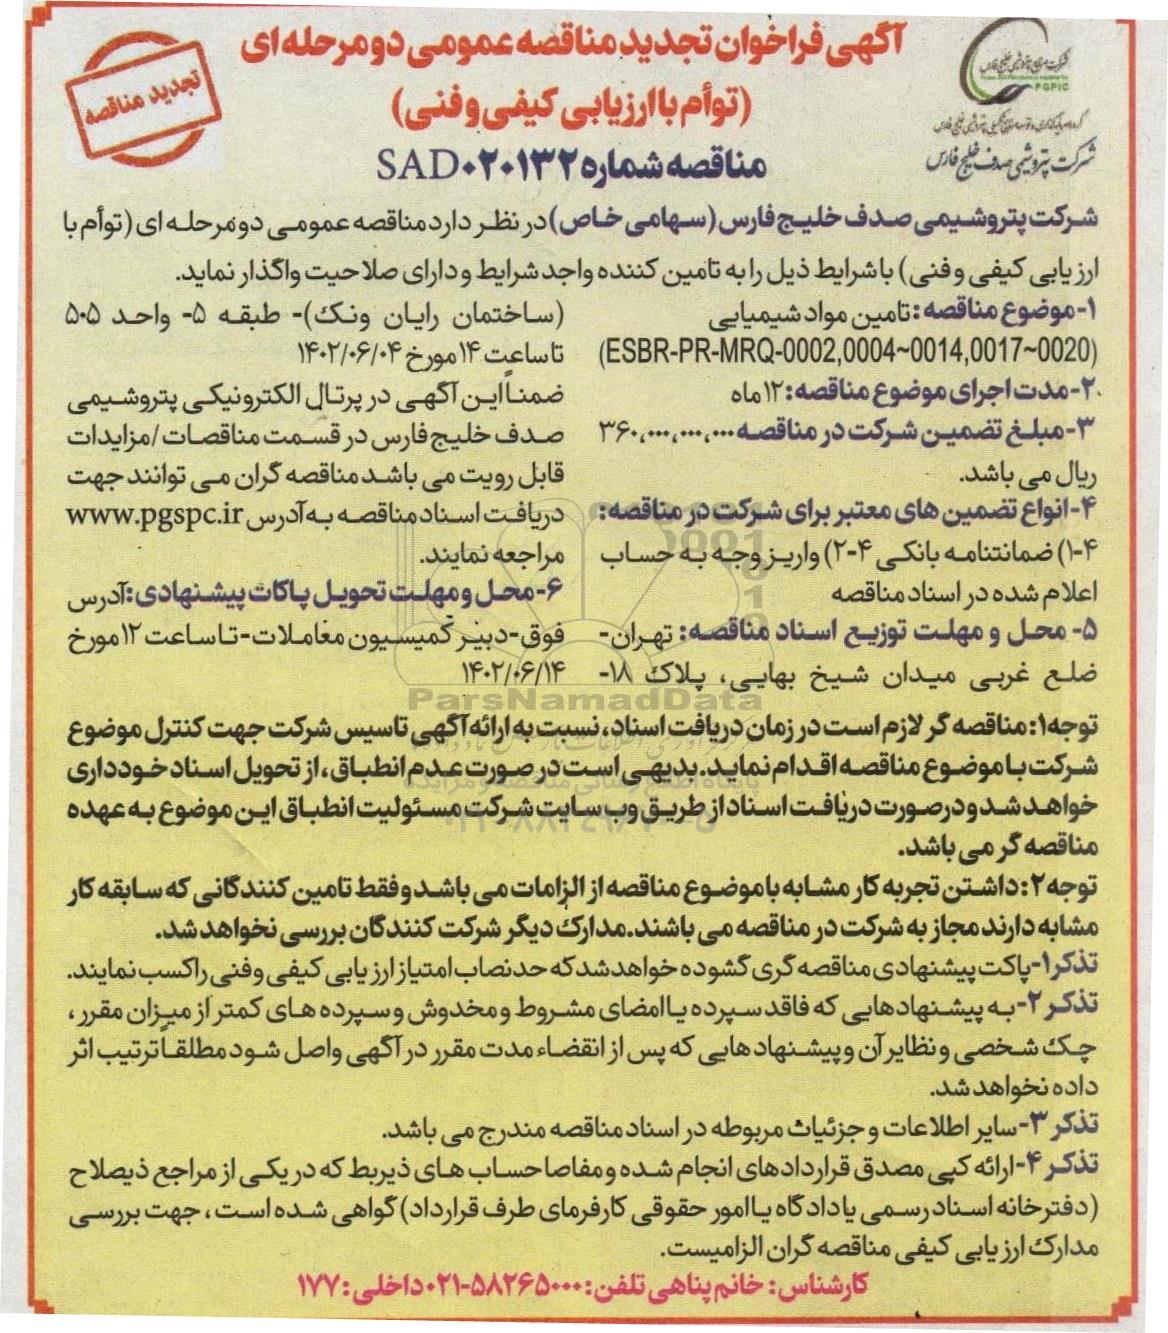 آگهی فراخوان تجدید مناقصه عمومی دو مرحله ای
(توأم با ارزیابی کیفی و فنی)
مناقصه شماره SAD۰۲۰۱۳۲
تجدید مناقصه
شرکت صنایع پتروشیمی خلیج فارس
PGPIC
شرکت پتروشیمی صدف خلیج فارس
شرکت پتروشیمی صدف خلیج فارس (سهامی خاص) در نظر دارد مناقصه عمومی دو مرحله ای (توأم با
ارزیابی کیفی و فنی) با شرایط ذیل را به تامین کننده واجد شرایط و دارای صلاحیت واگذار نماید.
۱-موضوع مناقصه: تامین مواد شیمیایی
(ESBR-PR-MRQ-0002,0004~0014,0017~0020)
۲-مدت اجرای موضوع مناقصه: ۱۲ ماه
۳-مبلغ تضمین شرکت در مناقصه ۳۶۰,۰۰۰,۰۰۰,۰۰۰
ریال می باشد.
۴-انواع تضمین های معتبر برای شرکت در مناقصه:
۴-۱) ضمانتنامه بانکی ۴-۲) واریز وجه به حساب
اعلام شده در اسناد مناقصه
۵- محل و مهلت توزیع اسناد مناقصه: تهران-
ضلع غربی میدان شیخ بهایی، پلاک ۱۸-
(ساختمان رایان ونک)- طبقه ۵- واحد ۵۰۵
تا ساعت ۱۴ مورخ ۱۴۰۲/۰۶/۰۴
ضمناً این آگهی در پرتال الکترونیکی پتروشیمی
صدف خلیج فارس در قسمت مناقصات /مزایدات
قابل رویت می باشد مناقصه گران می توانند جهت
دریافت اسناد مناقصه به آدرس www.pgspc.ir
مراجعه نمایند.
۶-محل و مهلت تحویل پاکات پیشنهادی: آدرس
فوق-دبیر کمیسیون معاملات-تا ساعت ۱۲ مورخ
۱۴۰۲/۰۶/۱۴
ParsNamadData
توجه۱: مناقصه گر لازم است در زمان دریافت اسناد، نسبت به ارائه آگهی تاسیس شرکت جهت کنترل موضوع
شرکت با موضوع مناقصه اقدام نماید. بدیهی است در صورت عدم انطباق، از تحویل اسناد خودداری
خواهد شد و درصورت دریافت اسناد از طریق وب سایت شرکت مسئولیت انطباق این موضوع به عهده
مناقصه گر می باشد.
توجه۲: داشتن تجربه کار مشابه با موضوع مناقصه از الزامات می باشد و فقط تامین کنندگانی که سابقه کار
مشابه دارند مجاز به شرکت در مناقصه می باشند. مدارک دیگر شرکت کنندگان بررسی نخواهد شد.
تذکر۱-پاکت پیشنهادی مناقصه گری گشوده خواهد شد که حد نصاب امتیاز ارزیابی کیفی و فنی را کسب نمایند.
تذکر ۲-به پیشنهادهایی که فاقد سپرده یا امضای مشروط و مخدوش و سپرده های کمتر از میزان مقرر،
چک شخصی و نظایر آن و پیشنهادهایی که پس از انقضاء مدت مقرر در آگهی واصل شود مطلقاً ترتیب اثر
داده نخواهد شد.
تذکر ۳-سایر اطلاعات و جزئیات مربوطه در اسناد مناقصه مندرج می باشد.
تذکر ۴-ارائه کپی مصدق قراردادهای انجام شده و مفاصا حساب های ذیربط که در یکی از مراجع ذیصلاح
(دفترخانه اسناد رسمی یا دادگاه یا امور حقوقی کارفرمای طرف قرارداد) گواهی شده است، جهت بررسی
مدارک ارزیابی کیفی مناقصه گران الزامیست.
کارشناس: خانم پناهی تلفن: ۰۲۱-۵۸۲۶۵۰۰۰ داخلی: ۱۷۷